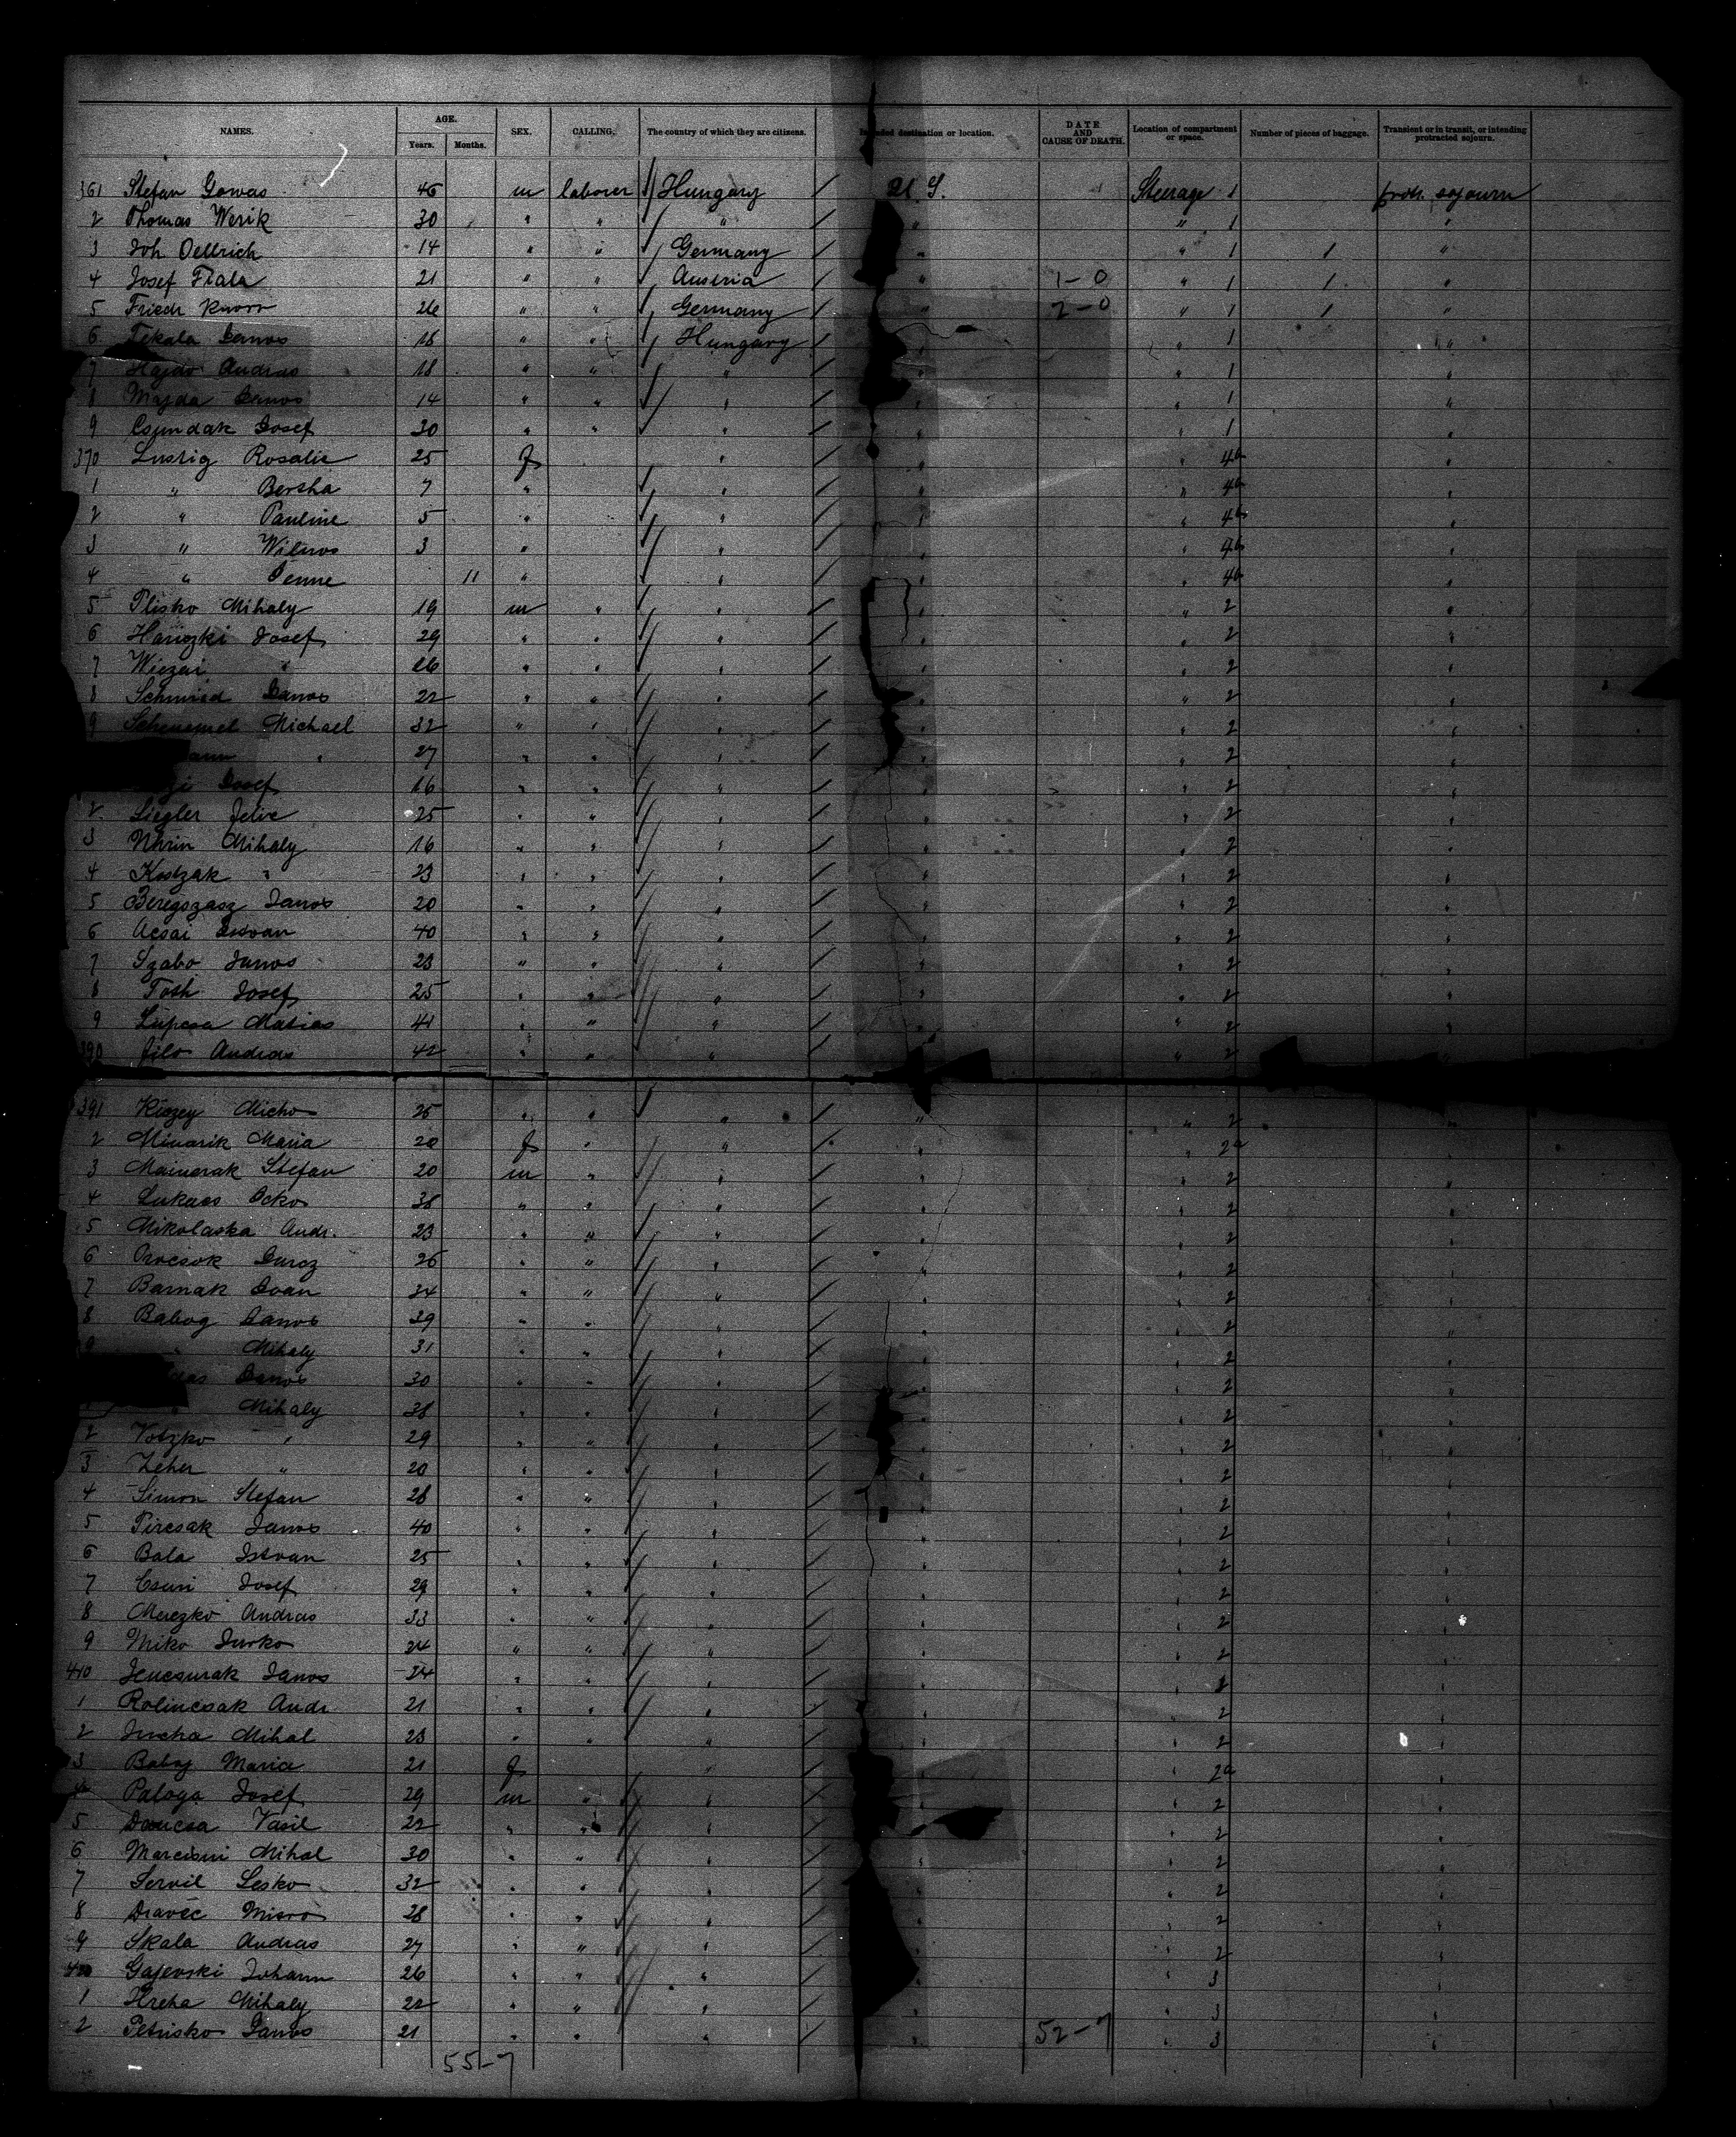 NAMES. AGE. Years. Months. SEX. CALLING. The country of which they are citizens. Intended destination or location. DATE AND CAUSE OF DEATH. Location of compartment or space. Number of pieces of baggage. Transient or in transit, or intending protracted sojourn.
361 Stefan Gowas 45 m laborer Hungary U.S. Steerage 1 protr. sojourn
2 Thomas Werik 30 " " " " 1 "
3 Joh Oellrich 14 " " Germany " " 1 1 "
4 Josef Fiala 21 " " Austria " 1-0 " 1 1 "
5 Friedr Knorr 26 " " Germany " 2-0 " 1 1 "
6 Tekala Janos 18 " " Hungary " 1 "
7 Hajdu Andras 18 " " " " " 1 "
8 Majda Janos 14 " " " " " 1 "
9 Csundak Josef 30 " " " " " 1 "
370 Lustig Rosalie 25 f " " " 4b "
1 " Bertha 7 " " " " 4b "
2 " Pauline 5 " " " " 4b "
3 " Wilmos 3 " " " " 4b "
4 " Jenne 11 " " " " 4b "
5 Plisko Mihaly 19 m " " " " 2 "
6 Josef 29 " " " " " 2 "
7 " 26 " " " " " 2 "
8 Schmied Janos 22 " " " " " 2 "
9 Michael 32 " " " " " 2 "
" 27 " " " " " 2 "
Josef 16 " " " " " 2 "
2 Liegler 25 " " " " " 2 "
3 Mihaly 16 " " " " " 2 "
4 Kostzak " 23 " " " " " 2 "
5 Beregszasz Janos 20 " " " " " 2 "
6 Acsai Istvan 40 " " " " " 2 "
7 Szabo Janos 23 " " " " " 2 "
8 Toth Josef 25 " " " " " 2 "
9 Lupcsa Matias 41 " " " " " 2 "
390 Filo Andras 42 " " " " 2 "
391 Kiszey Micho 25 " " " " " 2 "
2 Minarik Maria 20 f " " " " 2a "
3 Stefan 20 m " " " " 2 "
4 Lukacs Ocko 38 " " " " " 2 "
5 Mikolaska Andr. 23 " " " " " 2 "
6 Orocsok 26 " " " " " 2 "
7 Barnak Ivan 34 " " " " " 2 "
8 Babog Janos 39 " " " " " 2 "
9 " Mihaly 31 " " " " " 2 "
Janos 30 " " " " " 2 "
" Mihaly 38 " " " " " 2 "
2 Votzko " 29 " " " " " 2 "
3 Zeher " 20 " " " " " 2 "
4 Simon Stefan 28 " " " " " 2 "
5 Pircsak Janos 40 " " " " " 2 "
6 Bala Istvan 25 " " " " " 2 "
7 Csuri Josef 29 " " " " " 2 "
8 Merezko Andras 33 " " " " " 2 "
9 Miko Jurko 24 " " " " " 2 "
410 Jencsurak Janos 24 " " " " " 2 "
1 Rolincsak Andr 21 " " " " " 2 "
2 Jurcha Mihal 23 " " " " " 2 "
3 Baboj Maria 21 f " " " 2a "
4 Paloga Josef 29 m " " " " 2 "
5 Dancsa Vasil 22 " " " " " 2 "
6 Marcisini Mihal 30 " " " " " 2 "
7 Servil Lesko 32 " " " " " 2 "
8 Dravec Misro 28 " " " " " 2 "
9 Skala Andras 27 " " " " " 2 "
420 Gajevski Johann 26 " " " " " 3 "
1 Hreha Mihaly 22 " " " " " 3 "
2 Petrisko Janos 21 " " " " 52-7 " 3 "
55-7